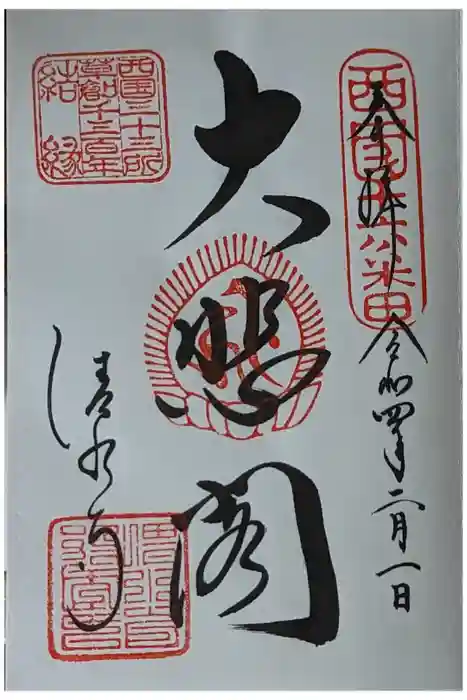 西国十六番
奉拝
令和四年二月一日
大悲閣
西国三十三所
草創千三百年
結縁
清水寺